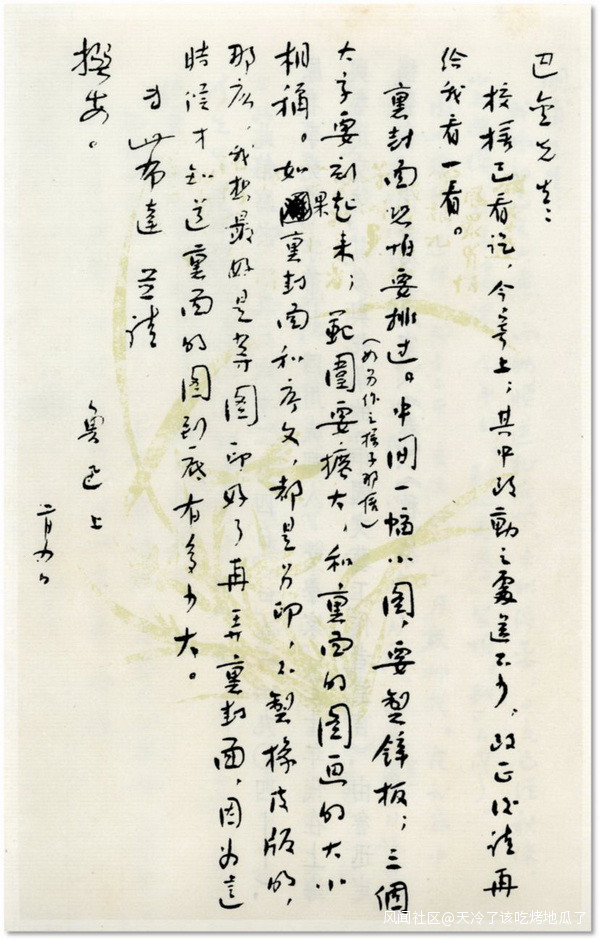 巴金先生：
校样已看讫，今寄上；其中改動之處還不少，改正後請再
给我看一看。
裏封面恐怕要排过。中间一幅小圖，要製鋅板；三個
大字要刻起来；範圍要擴大，（如另作之樣子那樣）和裏面的圖画的大小
相稱。如果裏封面和序文，都是另印，不製橡皮版的，
那麽，我想最好是等圖印好了再弄裏封面，因为這
時候才知道裏面的圖到底有多少大。
专此布達 并請
撰安。
魯迅上
二月九日
风闻社区@天冷了该吃烤地瓜了